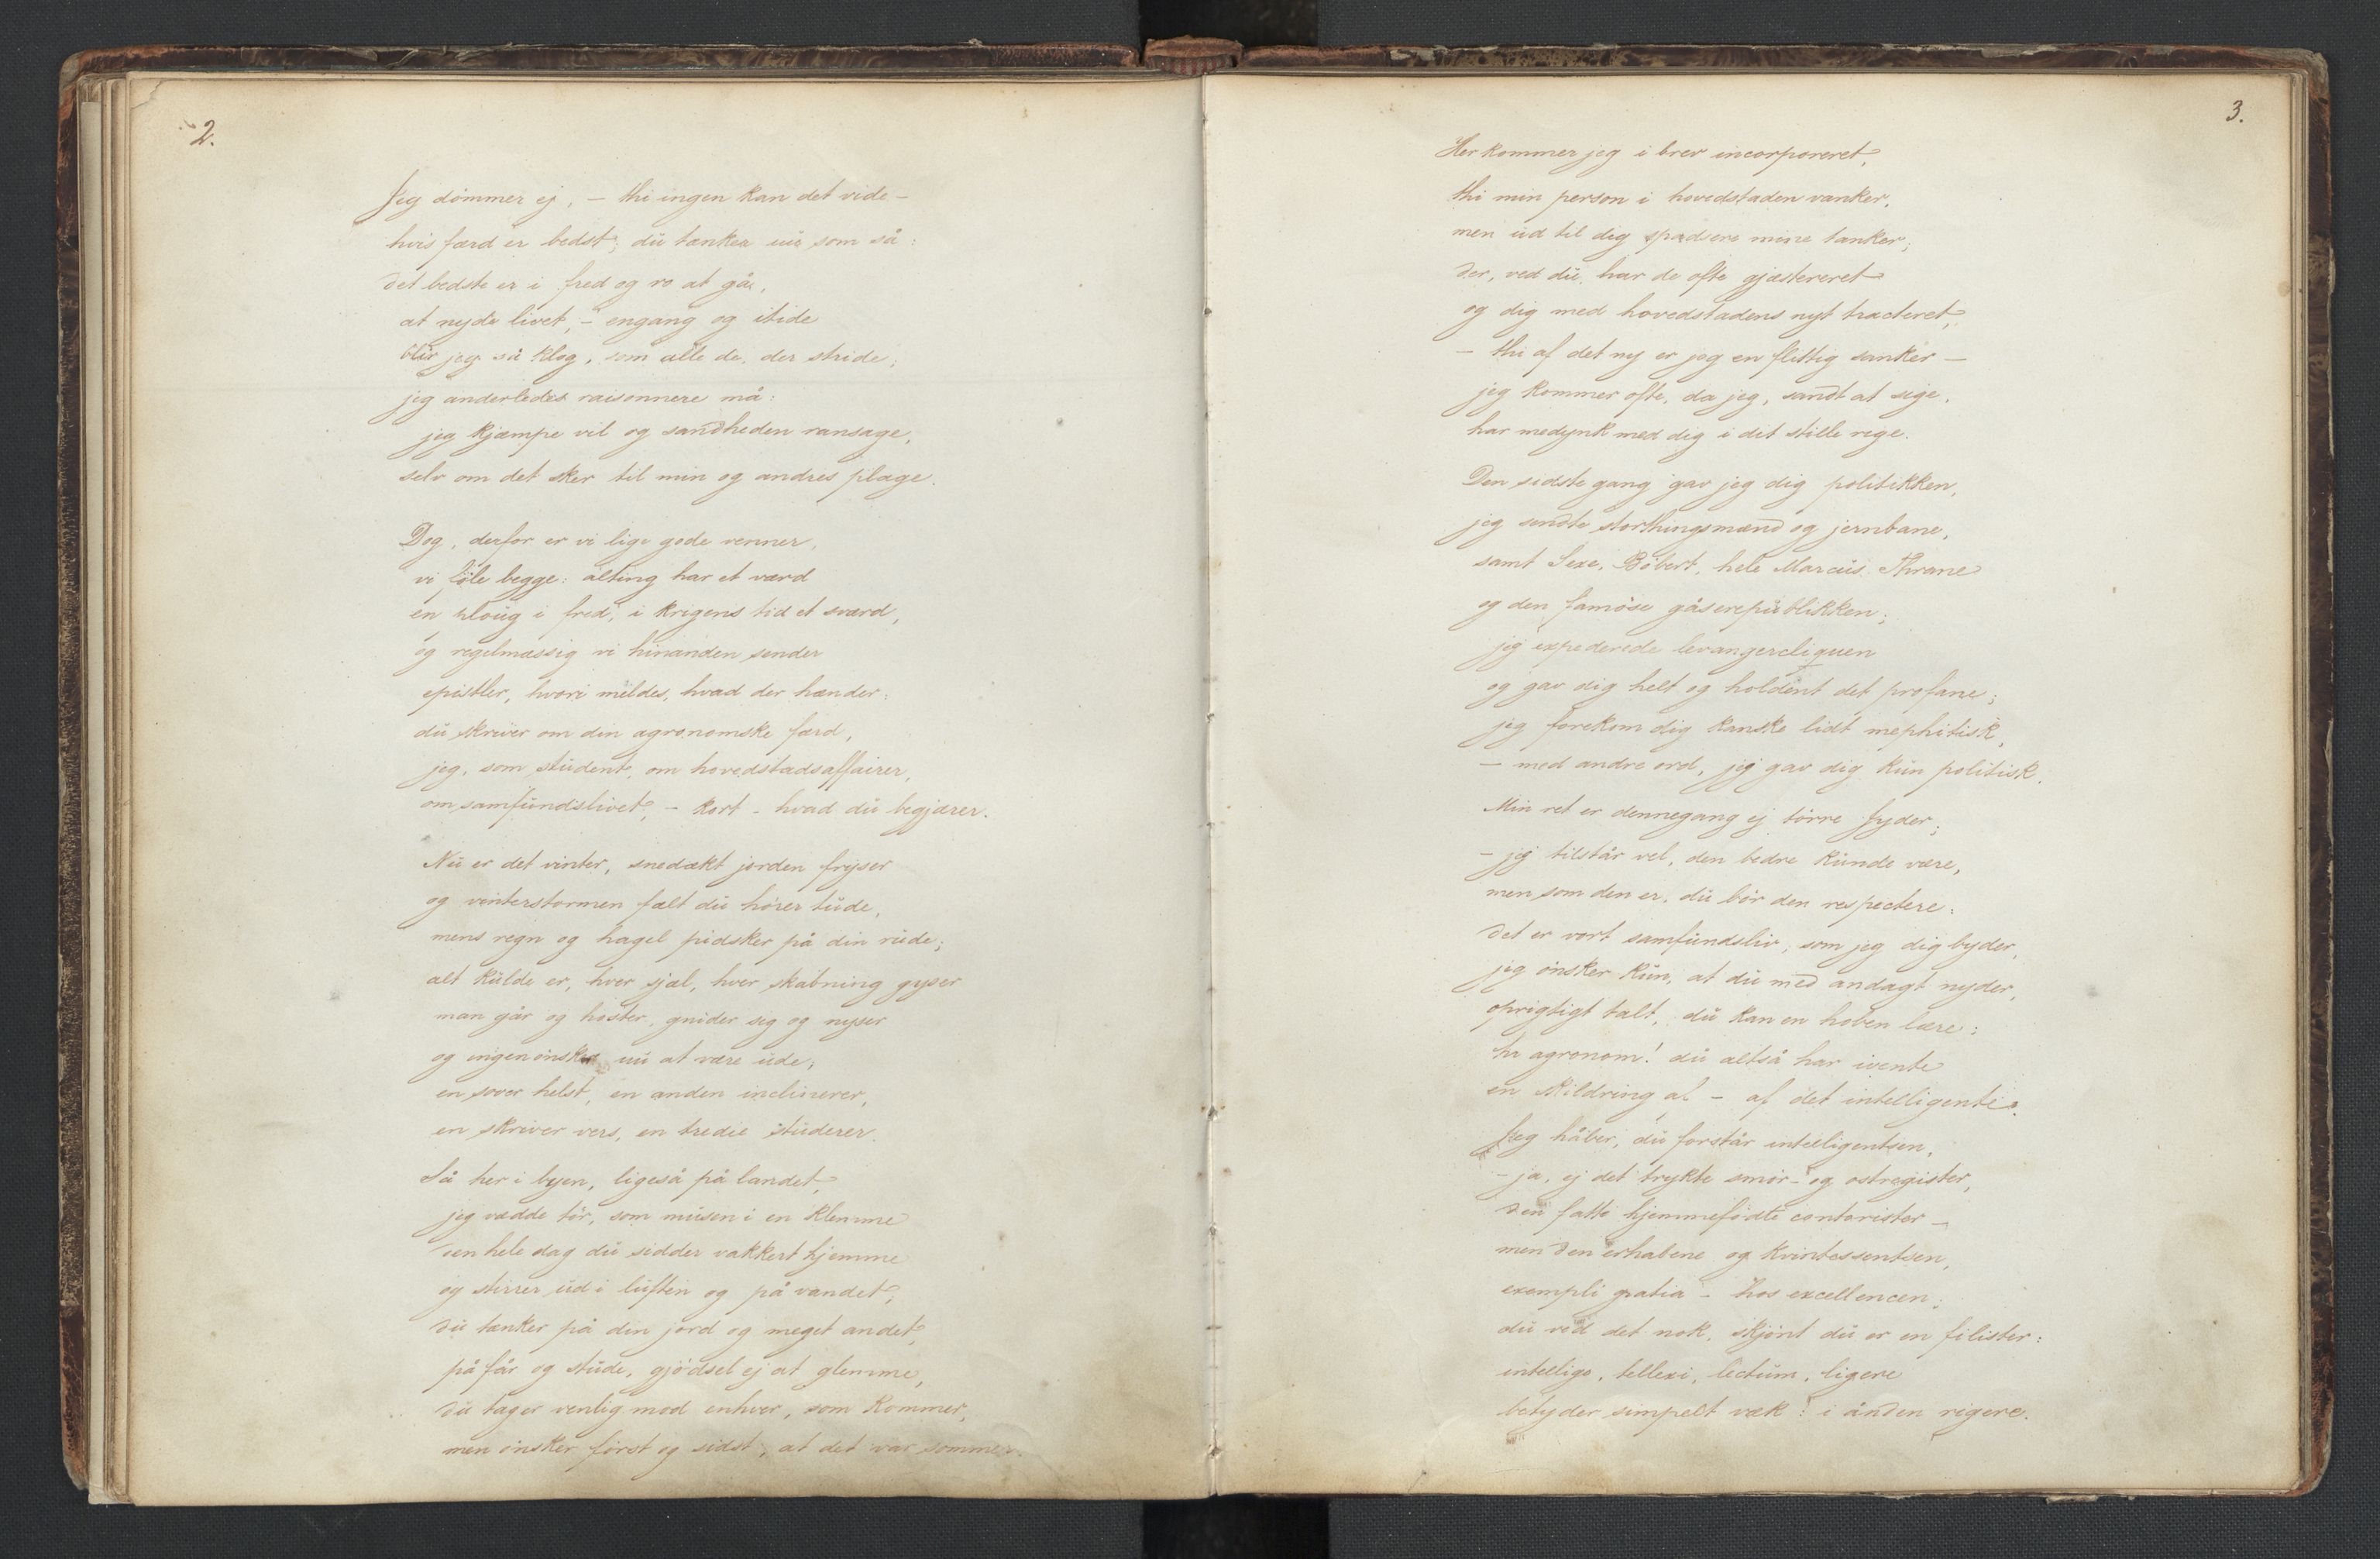 2.
Jeg dömmer ej, – thi ingen kan det vide –
hvis færd er bedst; du tænker nu som så:
det bedste er i fred og ro at gå,
at nyde livet, – engang og itide
blir jeg så klog, som alle de, der stride;
jeg anderledes raisonnere må:
jeg kjæmpe vil og sandheden ransage,
selv om det sker til min og andres plage.
Dog, derfor er vi lige gode venner,
vi föle begge: alting har et værd
en ploug i fred, i krigens tid et sværd,
og regelmæssig vi hinanden sender
epistler, hvori meldes, hvad der hænder:
du skriver om din agronomske færd,
jeg, som student, om hovedstadsaffairer,
om samfundslivet, – kort – hvad du begjærer.
Nu er det vinter, snedækt jorden fryser
og vinterstormen fælt du hörer tude,
mens regn og hagel pidsker på din rude;
alt kulde er, hver sjæl, hver skabning gyser
man går og hoster, gnider sig og nyser
og ingen önsker nu at være ude;
en sover helst, en anden inclinerer,
en skriver vers, en tredie studerer.
Så her i byen, ligeså på landet,
jeg vædde tör, som musen i en klemme
den hele dag du sidder vakkert hjemme
og stirrer ud i luften og på vandet,
du tænker på din jord og meget andet,
på får og stude, gjödsel ej at glemme,
du tager venlig mod enhver, som kommer,
men önsker först og sidst, at det var sommer.
3.
Her kommer jeg i brev incorporeret,
thi min person i hovedstaden vanker,
men ud til dig spadsere mine tanker;
der, ved du, har de ofte gjæstereret
og dig med hovedstadens nyt tracteret,
– thi af det ny er jeg en flittig sanker –
jeg kommer ofte, da jeg, sandt at sige,
har medynk med dig i dit stille rige.
Den sidste gang gav jeg dig politikken,
jeg sendte storthingsmænd og jernbane,
samt Sexe, Böbert, hele Marcus Thrane
og den famöse gåserepublikken;
jeg expederede levangercliquen
og gav dig helt og holdent det profane;
jeg forekom dig kanske lidt mephitisk,
– med andre ord, jeg gav dig kun politisk.
Min ret er dennegang ej törre jyder;
– jeg tilstår vel, den bedre kunde være,
men som den er, du bör den respectere:
det er vort samfundsliv, som jeg dig byder,
jeg önsker kun, at du med andagt nyder,
oprigtigt talt, du kan en hoben lære:
hr agronom! du altså har ivente
en skildring af – af det intelligente.
Jeg håber, du forstår intelligentsen,
– ja, ej det trykte smör- og ostregister,
den fatte hjemmefödte contorister –
men den erhabene og kvintessentsen,
exempli gratia – hos excellencen;
du ved det nok, skjönt du er en filister:
intelligo, tellexi, lectum, ligere
betyder simpelt væk: i ånden rigere.